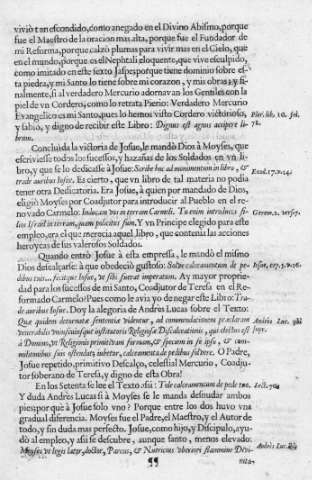 vivió tan escondido, como anegado en el Divino Abismo, porque
fue el Maestro de la oracion mas alta, porque fue el Fundador de
mi Reforma, porque calzò plumas para vivir mas en el Cielo, que
en el mundo, porque es el Nephtali eloquente, que vive esculpido,
como imitado en este sexto Jaspe, porque tiene dominio sobre es-
ta piedra, y mi Santo lo tiene sobre mi corazon, y mis obras; y fi-
nalmente, si al verdadero Mercurio adornavan los Gentiles con la
piel de vn Cordero, como lo retrata Pierio: Verdadero Mercurio
Evangelico es mi Santo, pues lo hemos visto Cordero victorioso,
y sabio, y digno de recibir este Libro: Dignus est agnus accipere li-
brum.
Pier. lib. 10. fol.
78.
Concluida la victoria de Josue, le mandò Dios à Moyses, que
escriviesse todos los sucessos, y hazañas de los Soldados en vn li-
bro, y que se lo dedicasse à Josue: Scribe hoc ad monimentum in libro, &
trade auribus Iosue. Es cierto, que vn libro de tal materia no podia
tener otra Dedicatoria. Era Josue, à quien por mandado de Dios,
eligiò Moyses por Coadjutor para introducir al Pueblo en el re-
novado Carmelo: Induxi vos in terram Carmeli. Tu enim introduces fi-
lios Israël in terram, quam pollicitus sum. Y vn Principe elegido para este
empleo, era el que merecia aquel libro, que contenia las acciones
heroycas de sus valerosos Soldados.
Exod. 17. v. 14.
Gerem. 2. vers. 7.
Quando entrò Josue à esta empresa, le mandò el mismo
Dios descalçarse: à que obedeciò gustoso: Solve calceamentum de pe-
dibus tuis... fecitque Iosue, vt sibi fuerat imperatum. Ay mayor proprie-
dad para los sucessos de mi Santo, Coadjutor de Teresa en el Re-
formado Carmelo? Pues como le avia yo de negar este Libro: Tra-
de auribus Iosue. Doy la alegoria de Andres Lucas sobre el Texto:
Iosue, cap. 5. v. 16.
Andrès Luc.
à Domino, vt Religionis primitivam formam, & speciem in se ipso, & com-
militonibus suis ostendat, iubetur, calceamenta de pedibus solvere. O Padre,
Josue repetido, primitivo Descalço, celestial Mercurio, Coadju-
tor soberano de Teresa, y digno de esta Obra!
En los Setenta se lee el Texto assi: Tolle calceamentum de pede tuo.
Y duda Andrès Lucas si à Moyses se le manda desnudar ambos
pies, porquè à Josue solo vno? Porque entre los dos huvo vna
gradual diferencia. Moyses fue el Padre, el Maestro, y el Autor de
todo, y sin duda mas perfecto. Josue, como hijo, y Discipulo, ayu-
dò al empleo, y assi se descubre, aunque santo, menos elevado:
Moyses vt legis lator, doctor, Parens, & Nutricius
¶¶